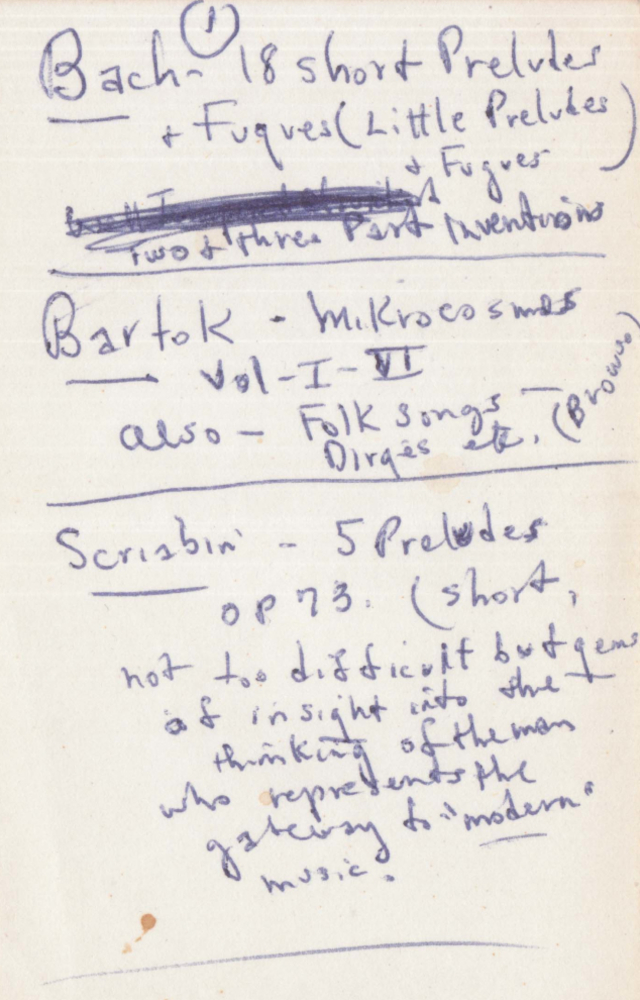 1
Bach - 18 short Preludes
+ Fugues (Little Preludes
+ Fugues)
Two + three Part Inventions
Bartok - Mikrocosmos
Vol - I - VI
also - Folk songs -
Dirges etc. (Browse)
Scriabin - 5 Preludes
op 73. (short,
not too difficult but gems
of insight into the
thinking of the man
who represents the
gateway to "modern"
music.